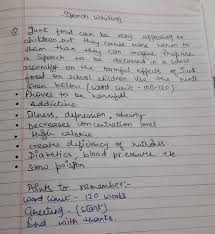 Speech Writing
Q Junk food can be very appealing to
children but they cause more harm to
them than they can imagine. Prepare
a speech to be delivered in a school
assembly on the harmful effects of Junk
food on school children. Use the hints
given below (word limit - 100-120)
• Proves to be harmful
• Addictive
• Illness, depression, obesity
• Decreases concentration level
• High calorie
• creates deficiency of nutrients
• Diabetics, blood pressure etc
• Slow poison
Points to remember:-
Word limit - 120 words
Greeting - (start)
End with thanks.